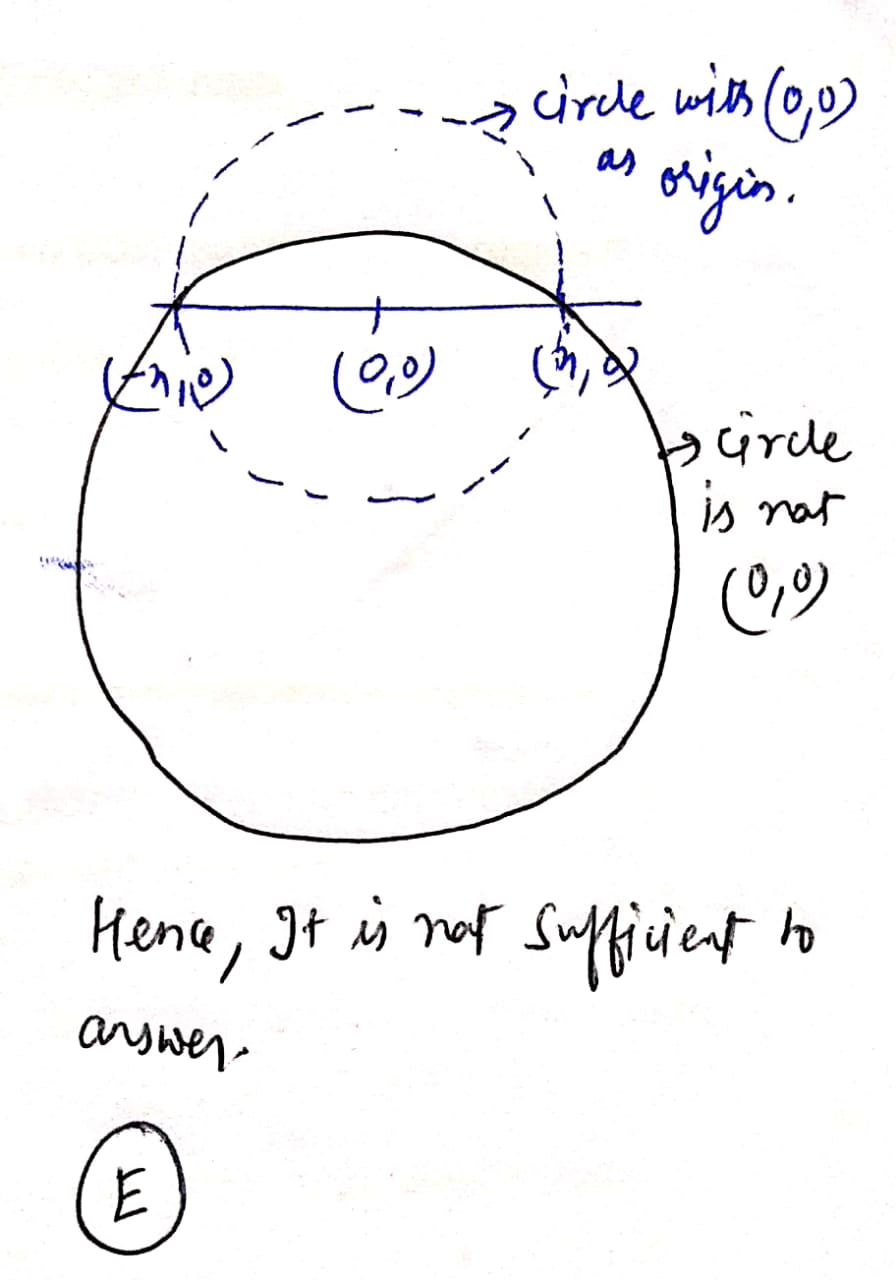 → circle with (0,0)
as origin.
(-n,0) (0,0) (n,0)
→ circle
is not
(0,0)
Hence, It is not sufficient to
answer.
E